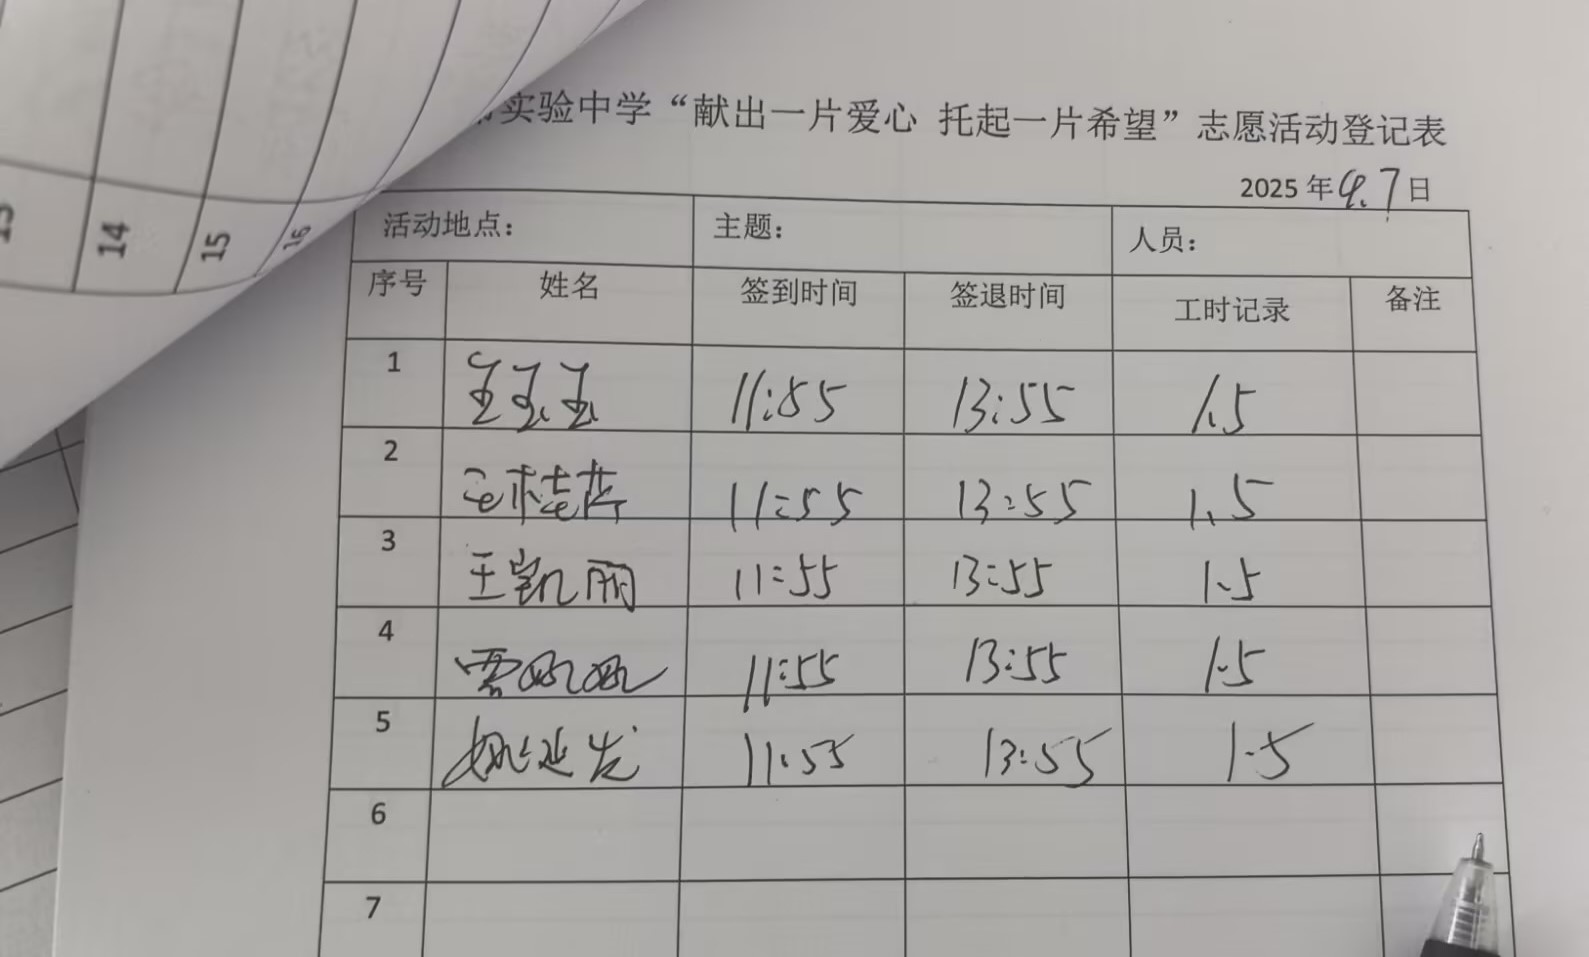 实验中学“献出一片爱心 托起一片希望”志愿活动登记表
2025年9.7日
活动地点： 主题： 人员：
序号 姓名 签到时间 签退时间 工时记录 备注
1 王玉玉 11:55 13:55 1.5
2 11:55 13:55 1.5
3 王凯丽 11:55 13:55 1.5
4 11:55 13:55 1.5
5 姚延发 11:55 13:55 1.5
6
7
14
15
16